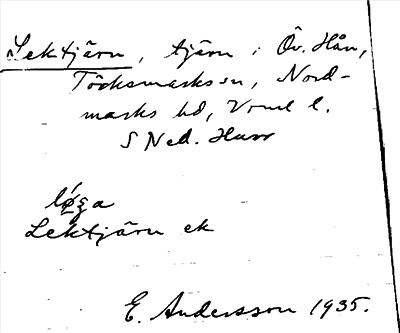 Lektjärn, tjärn i Öv. Hån,
Töcksmarks sn, Nord-
marks hd, Vrml l.
S Ned. Hån
løga
Lektjärn ek
E. Andersson 1935.